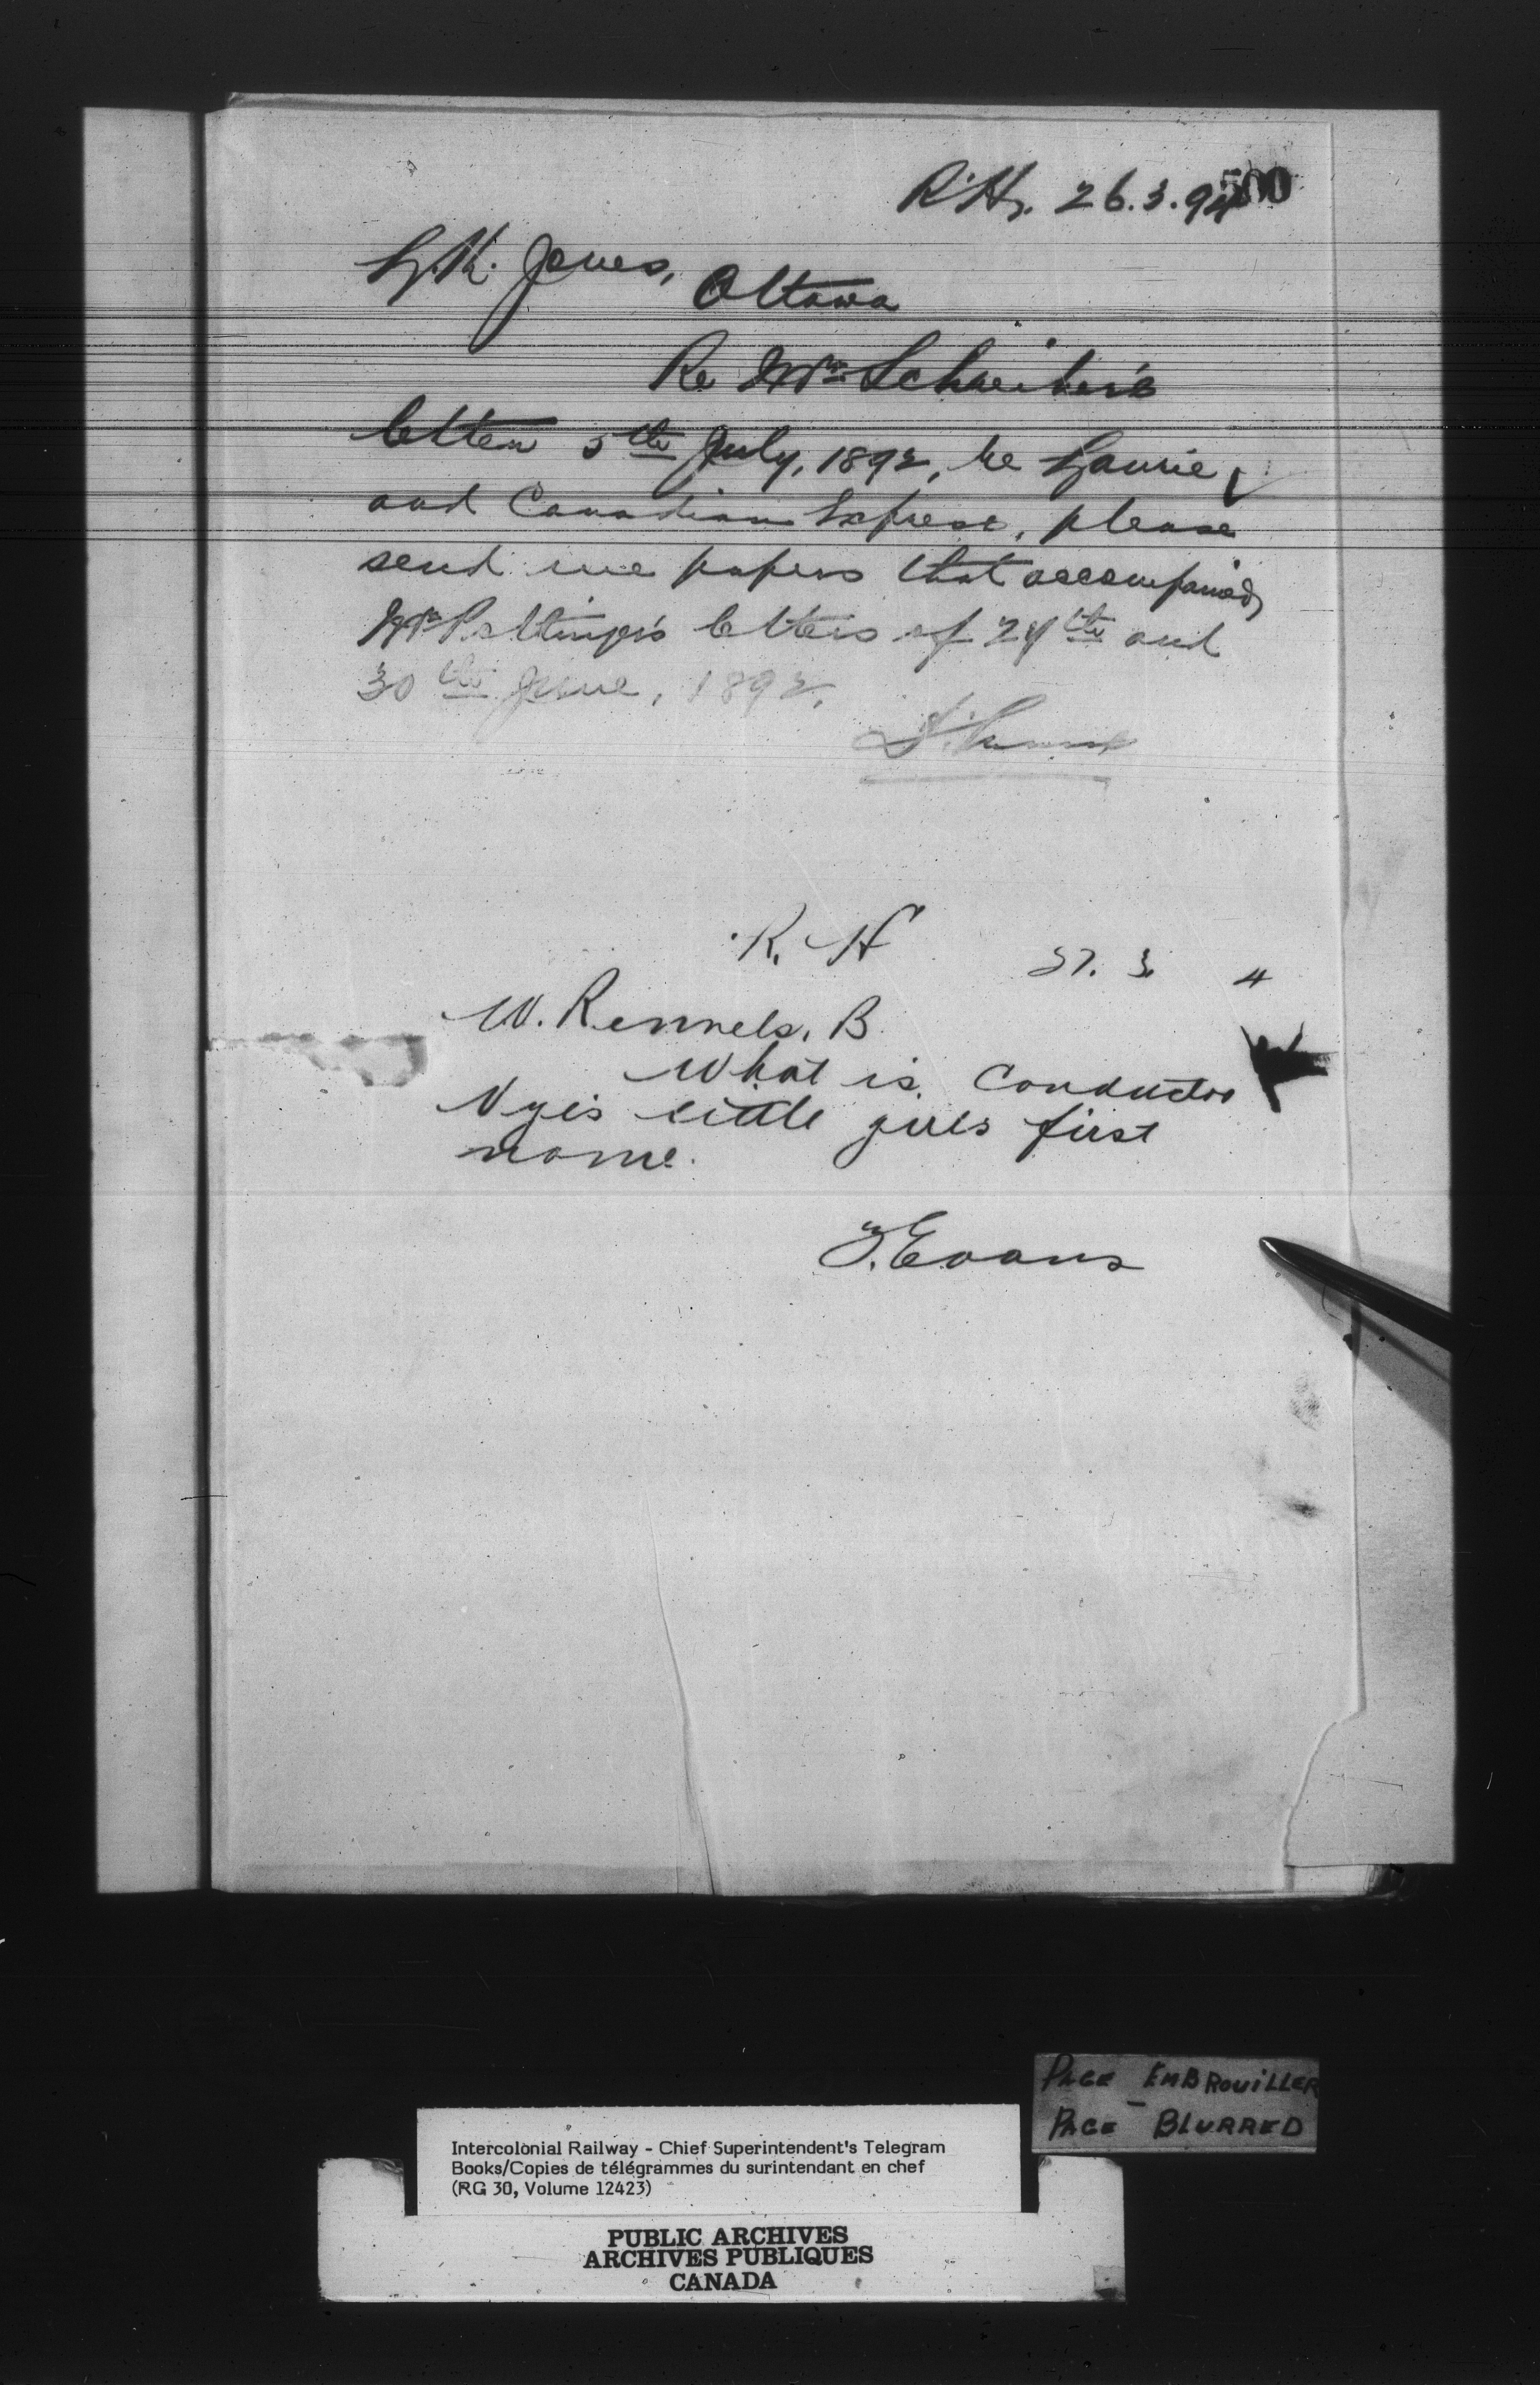 500
R'Hx. 26.3.94
L.K. Jones, Ottawa
Re Mr Schreiber's
letter 5th July, 1892, re Laurie
and Canadian Express, please
send me papers that accompanied
Mr Pottinger's letters of 24th and
30th June, 1892.
R. H 27. 3. 4
W. Rennels, B.
What is Conductor
Nye's little girls first
name.
T. Evans
PAGE EMBROUILLER
PAGE BLURRED
Intercolonial Railway - Chief Superintendent's Telegram
Books/Copies de télégrammes du surintendant en chef
(RG 30, Volume 12423)
PUBLIC ARCHIVES
ARCHIVES PUBLIQUES
CANADA